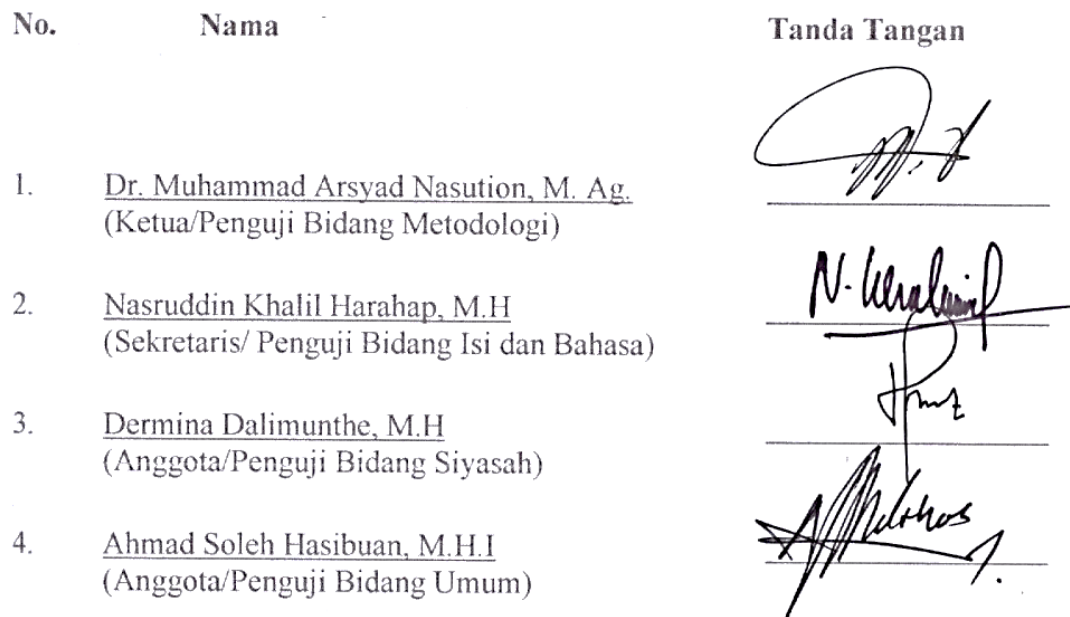 No. Nama Tanda Tangan
1. Dr. Muhammad Arsyad Nasution, M. Ag.
(Ketua/Penguji Bidang Metodologi)
2. Nasruddin Khalil Harahap, M.H
(Sekretaris/ Penguji Bidang Isi dan Bahasa)
3. Dermina Dalimunthe, M.H
(Anggota/Penguji Bidang Siyasah)
4. Ahmad Soleh Hasibuan, M.H.I
(Anggota/Penguji Bidang Umum)